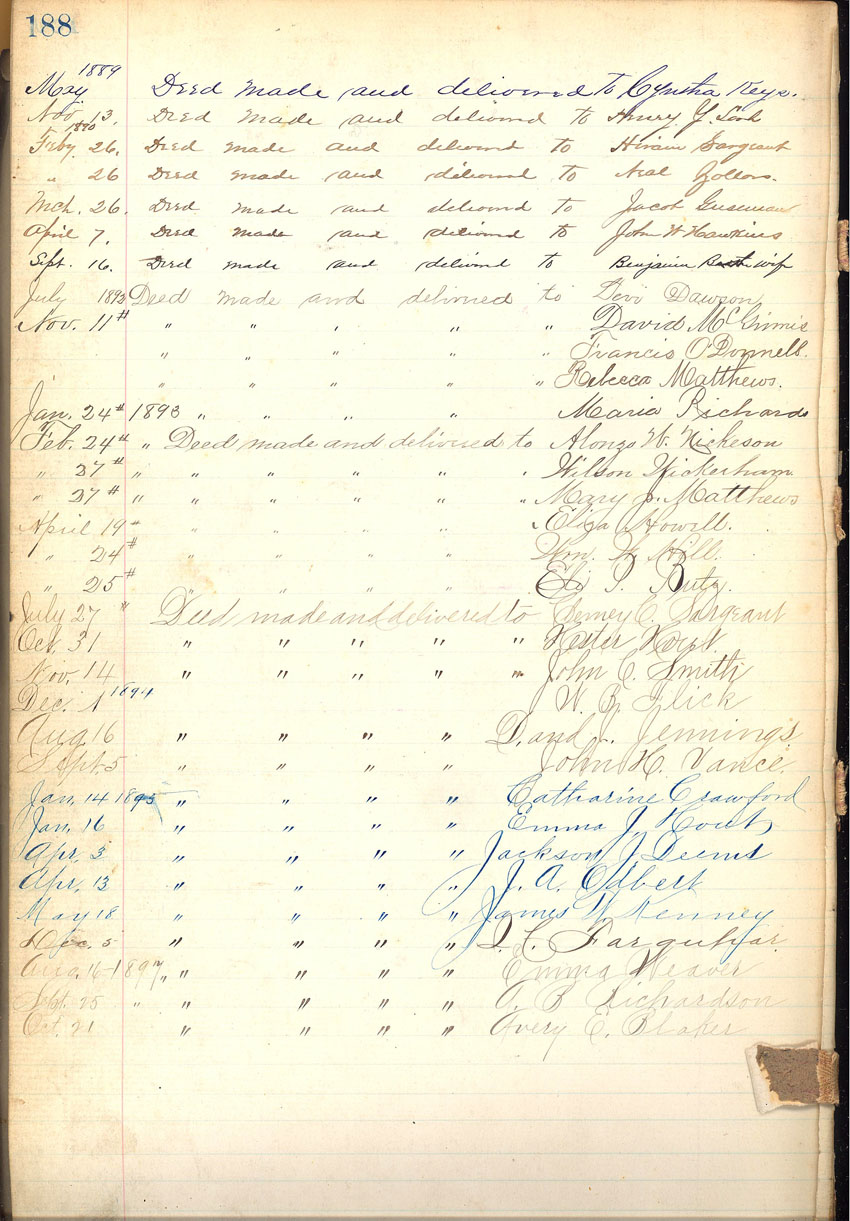 188
1889
May Deed made and delivered to Cyntha Keys.
Nov. 13. Deed made and delivered to Henry Y.
1890
Feby 26. Deed made and delivered to Hiram Sargeant
" 26 Deed made and delivered to Neal Zollars.
Mch. 26. Deed made and delivered to Jacob Guseman
April 7. Deed made and delivered to John W Hawkins
Sept. 16. Deed made and delivered to Benjamin wife
July 1892 Deed made and delivered to Levi Dawson
Nov. 11th " " " " " David McGinnis
" " " " " Francis O'Donnell.
" " " " " Rebecca Matthews.
Jan. 24th 1893 " " " " Maria Richards
Feb. 24th " Deed made and delivered to Alonzo W. Nickeson
" 27th " " " " " " Wilson Wickerham
" 27th " " " " " " Mary J. Matthews
April 19th " " " " " Eliza Howell.
" 24th " " " " " Wm. H. Hill.
" 25th " " " " " Eli J. Rutz.
July 27 " Deed made and delivered to Demey C. Sargeant
Oct. 31 " " " " " Hester Hout
Nov. 14 " " " " " John C. Smith
Dec. 1 1894 W. B. Flick
Aug. 16 " " " " David L. Jennings
Sept. 5 " " " " John H. Vance.
Jan. 14 1895 " " " " Catharine Crawford
Jan. 16 " " " " Emma J. Hout
Apr. 3 " " " " Jackson J Deems
Apr. 13 " " " " J. A. Odbert
May 18 " " " " James W. Kenney
Dec. 5 " " " " Farquhar.
Aug. 16 1897 " " " " " Emma Weaver
Sept. 25 " " " " " O. B Richardson
Oct. 21 " " " " Avery E. Blaker